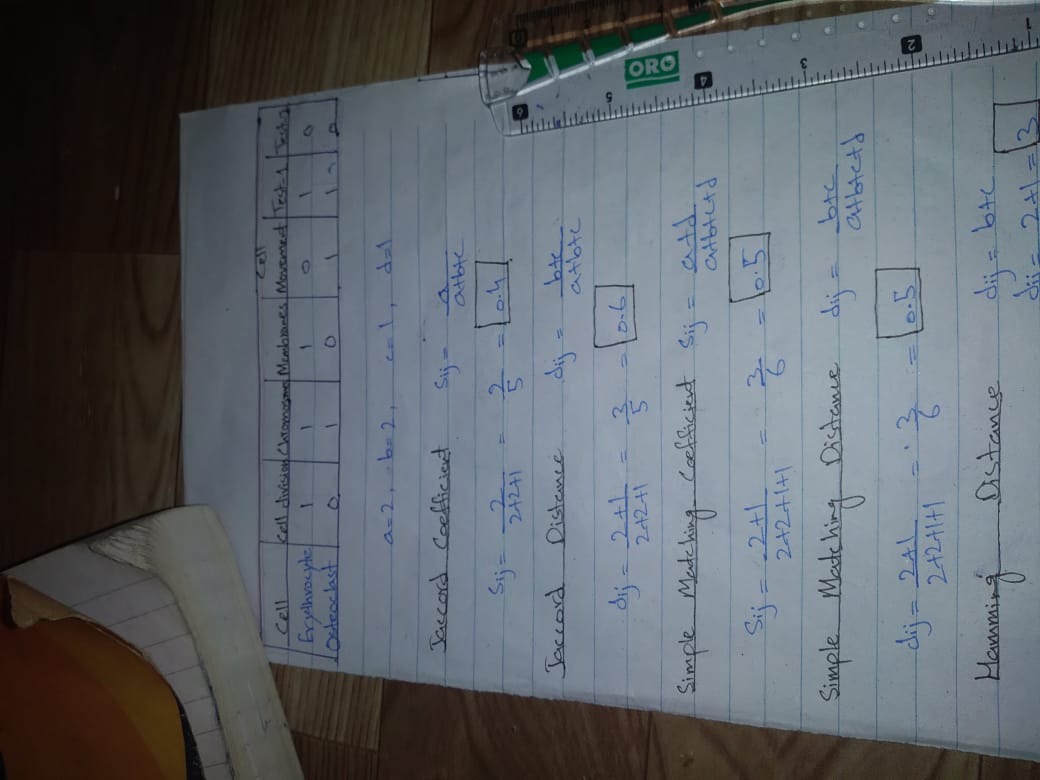 Cell | Cell division | Chromosome | Membranes | Cell Movement | Test-1 | Test-2
Erythrocyte | 1 | 1 | 1 | 0 | 1 | 0
Osteoclast | 0 | 1 | 0 | 1 | 1 | 0
a=2, b=2, c=1, d=1
Jaccord Coefficient Sij = a / a+b+c
Sij = 2 / 2+2+1 = 2/5 = 0.4
Jaccord Distance dij = b+c / a+b+c
dij = 2+1 / 2+2+1 = 3/5 = 0.6
Simple Matching Coefficient Sij = a+d / a+b+c+d
Sij = 2+1 / 2+2+1+1 = 3/6 = 0.5
Simple Matching Distance dij = b+c / a+b+c+d
dij = 2+1 / 2+2+1+1 = 3/6 = 0.5
Hamming Distance dij = b+c
dij = 2+1 = 3
ORO
6 5 4 3 2 1